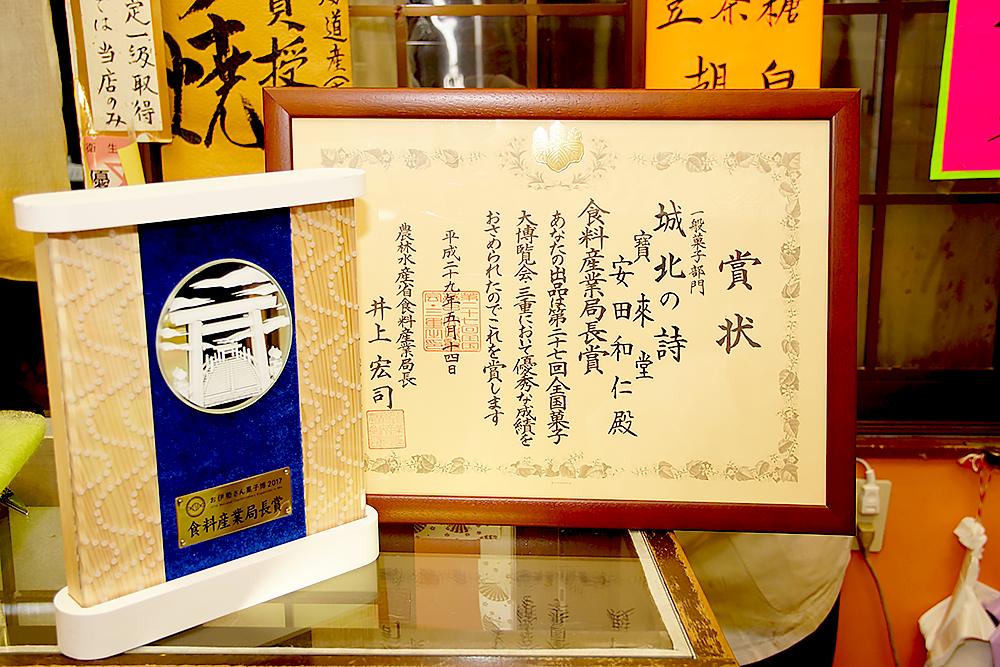 賞状
一般菓子部門
城北の詩
寳来堂
安田和仁殿
食料産業局長賞
あなたの出品は第二十七回全国菓子
大博覧会・三重において優秀な成績を
おさめられたのでこれを賞します
平成二十九年五月十四日
農林水産省食料産業局長
井上宏司
お伊勢さん菓子博2017
食料産業局長賞
定一級取得
は当店のみ
衛生
道産
授
焼
糖
茶
豆
胡
白